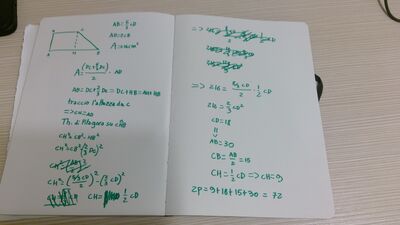 D C
A H B
AB = 5/3 CD
AB = 2 CB
A = 216 cm²
A = (DC + 5/3 DC)/2 · AD
AB = DC + 2/3 DC = DC + HB = AH + HB
traccio l'altezza da C
=> CH = AD
Th. di Pitagora su CHB
CH² = CB² - HB²
CH² = CB² (2/3 DC)²
CH² = (5/3 CD / 2)² - (2/3 CD)²
CH = 1/2 CD
=> 216 = (8/3 CD)/2 · 1/2 CD
216 = 2/3 CD²
CD = 18
AB = 30
CB = AB/2 = 15
CH = 1/2 CD => CH = 9
2P = 9 + 18 + 15 + 30 = 72